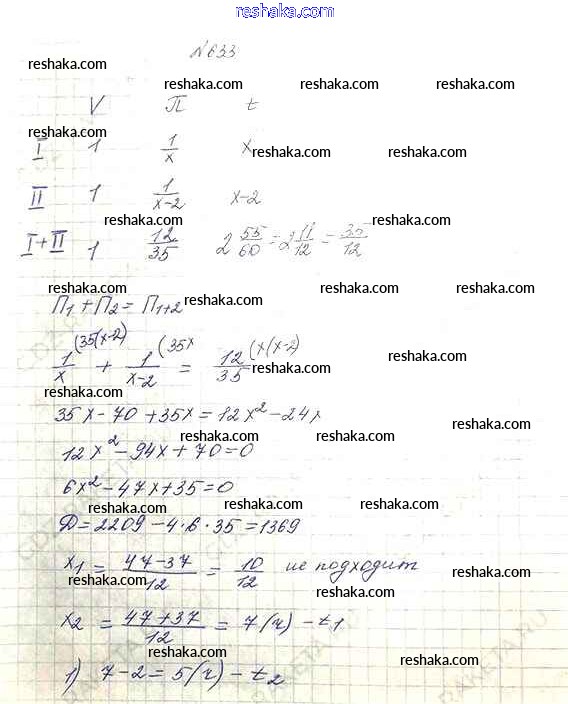 reshaka.com
№633
reshaka.com reshaka.com reshaka.com
V П t
reshaka.com
I 1 1/x x
reshaka.com reshaka.com
II 1 1/(x-2) x-2
reshaka.com reshaka.com
I+II 1 12/35 2 55/60 = 2 11/12 = 35/12
reshaka.com reshaka.com reshaka.com
П₁ + П₂ = П₁₊₂
reshaka.com
1/x (35(x-2) + 1/(x-2) (35x = 12/35 (x(x-2)
reshaka.com
reshaka.com
reshaka.com
35x - 70 + 35x = 12x² - 24x
reshaka.com
reshaka.com reshaka.com
12x² - 94x + 70 = 0
6x² - 47x + 35 = 0
reshaka.com reshaka.com reshaka.com
Д = 2209 - 4·6·35 = 1369
x₁ = (47-37)/12 = 10/12 не подходит
reshaka.com reshaka.com reshaka.com
x₂ = (47+37)/12 = 7(ч) - t₁
reshaka.com reshaka.com
1) 7-2 = 5(ч) - t₂